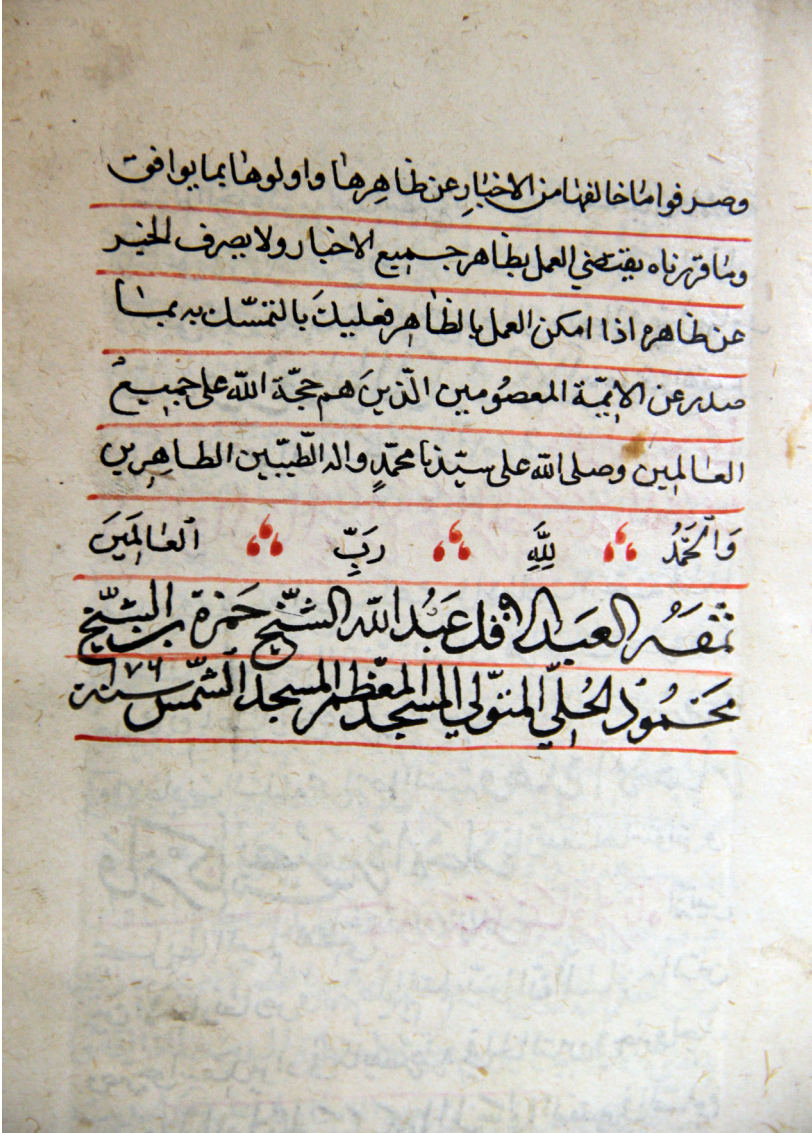 وصرفوا ما خالفها من الاخبارِ عن ظاهِرها واولوها بما يوافق
وما قررناه يقتضي العمل بظاهر جميع الاخبار ولا يصرف الخبر
عن ظاهره اذا امكن العمل بالظاهِر فعليكَ بالتمسّك به بما
صدر عن الائمّة المعصُومين الّذينَ هم حجّة اللّه على جميعُ
العالمِين وصلى اللّه على سيّدنا محمّدٍ واله الطّيبّين الطاهِرين
وَالحَمْدُ لِلَّهِ رَبِّ العالَمَينَ
نمقَهُ العبَد الاقل عَبُد اللّه الشّيخ حَمزة بن الشّيخ
محَمُود الحُلِيّ المتوّلي المسجد المعّظم المسجد الشّمس سنة